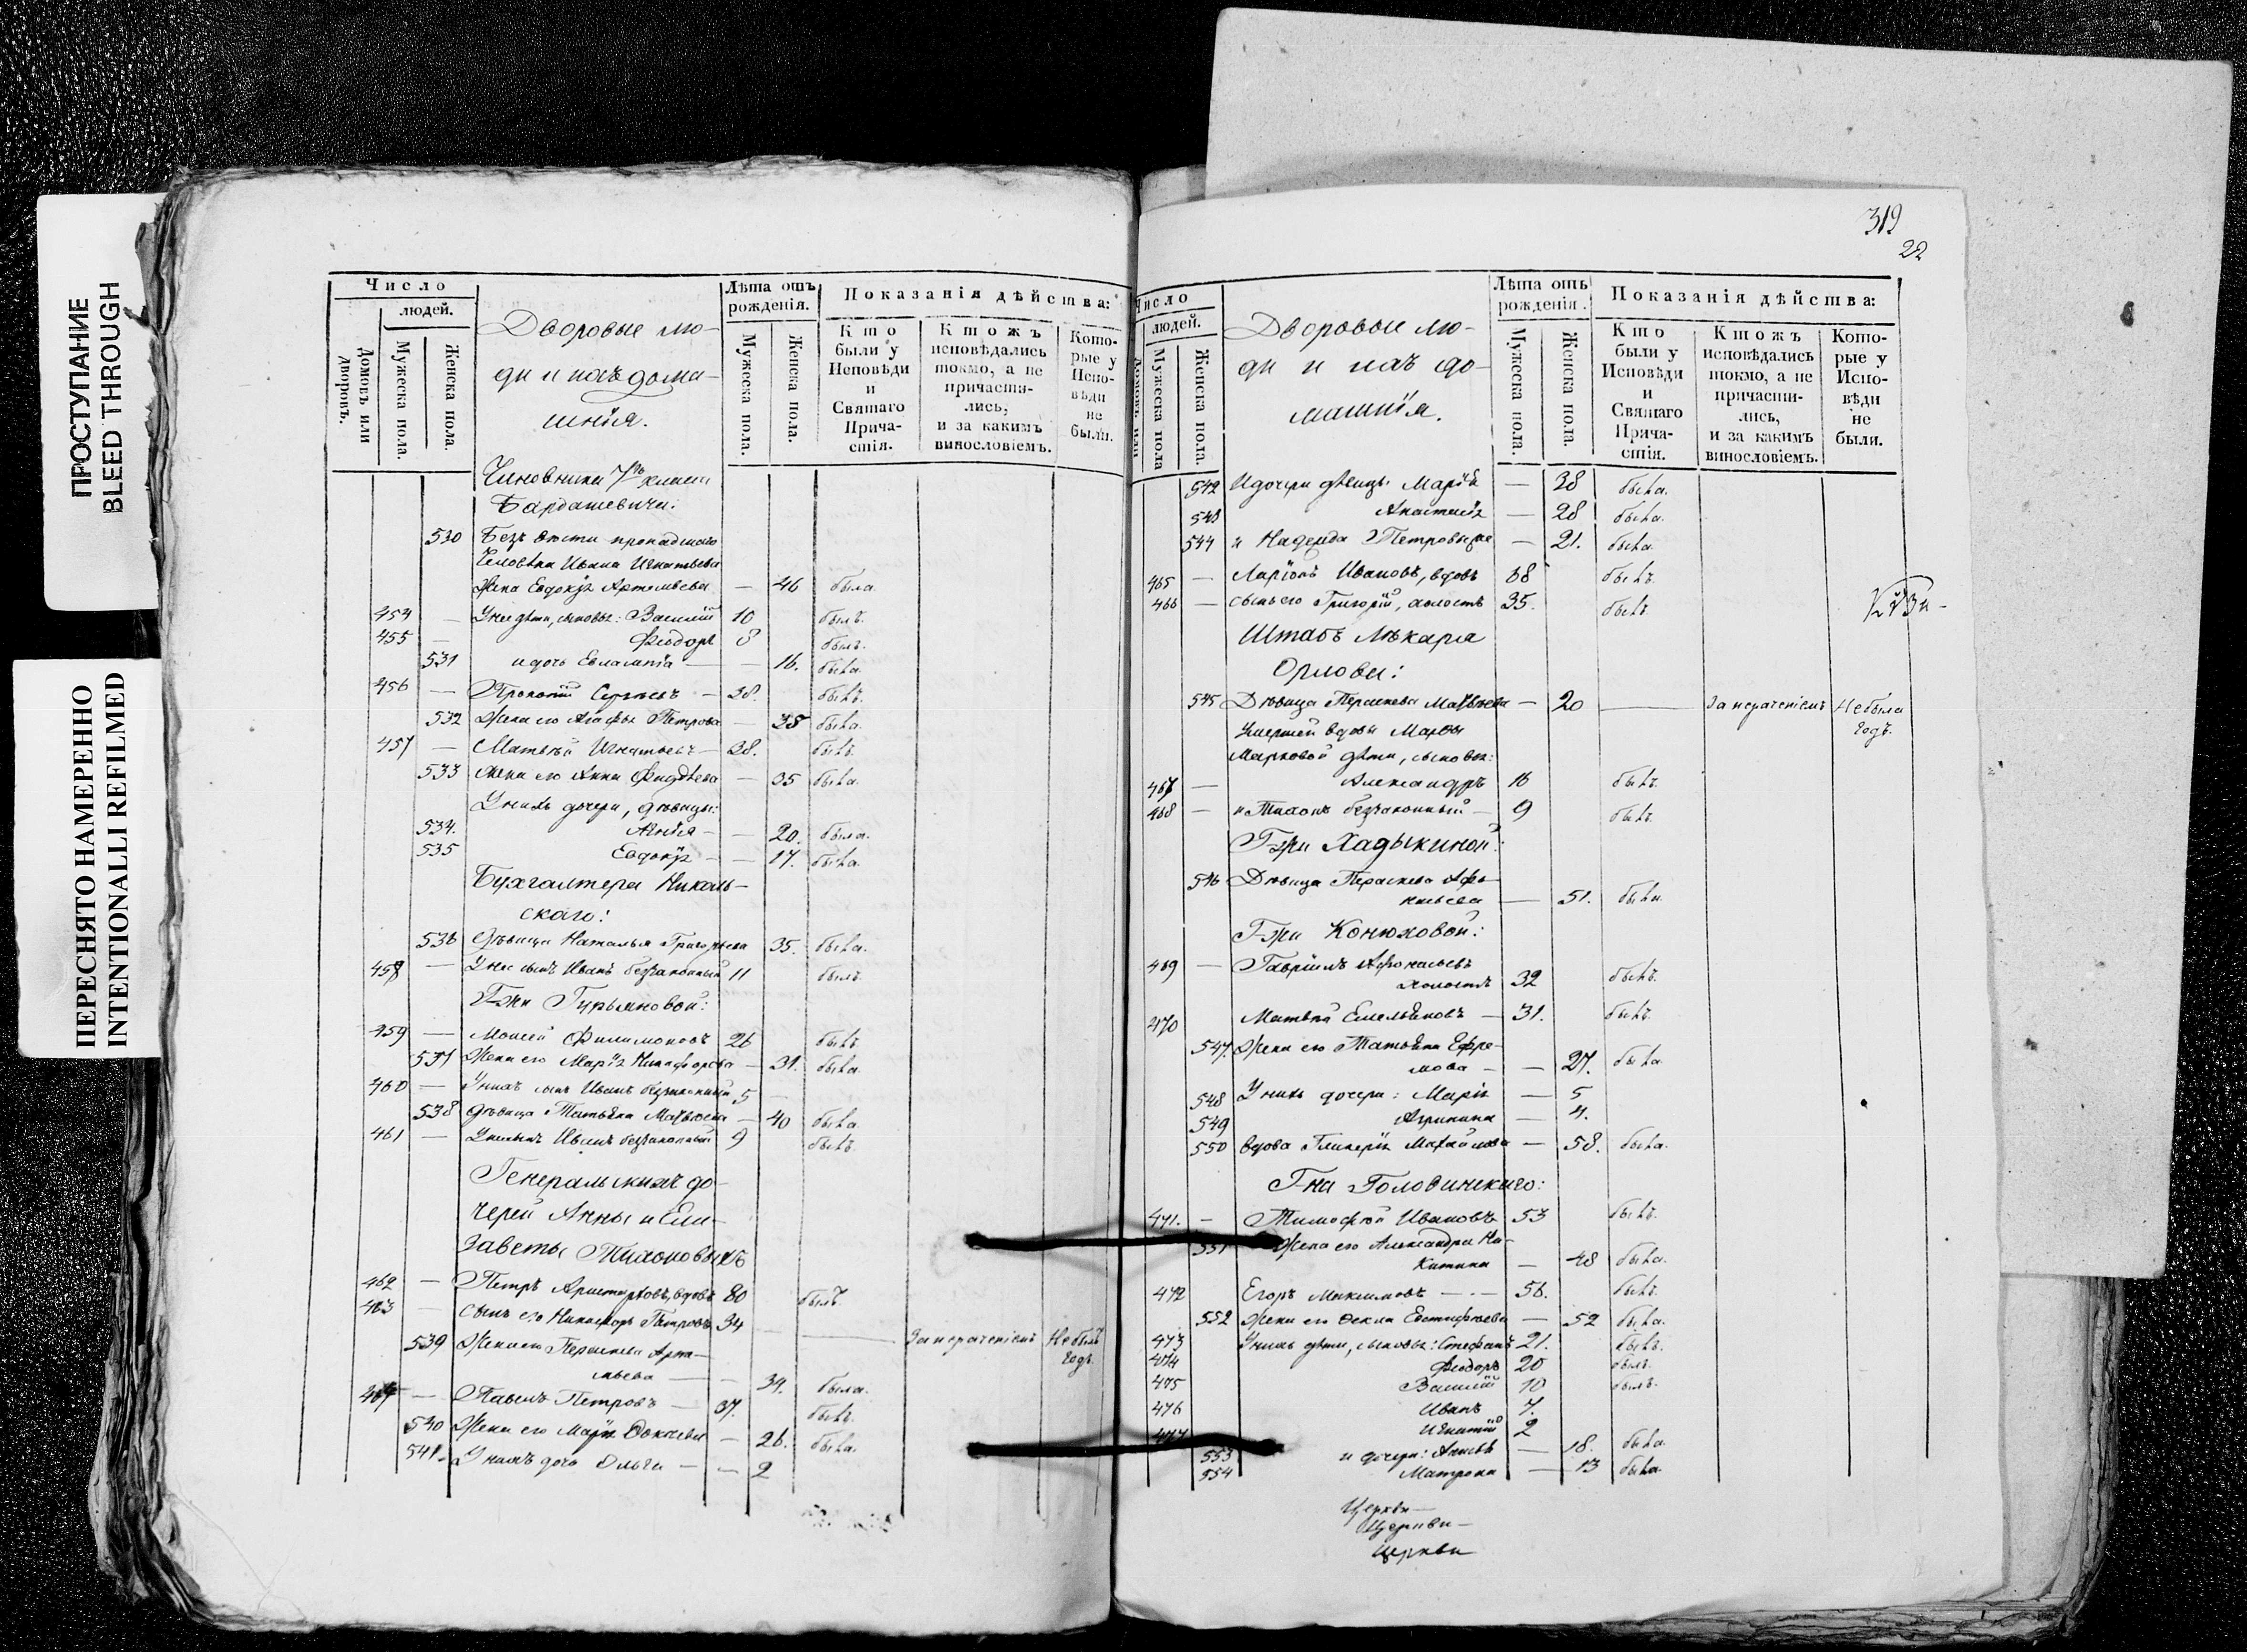 ПРОСТУПАНИЕ
BLEED THROUGH
ПЕРЕСНЯТО НАМЕРЕННО
INTENTIONALLI REFILMED
Число
людей.
Домовъ или дворовъ.
Мужеска пола.
Женска пола.
Дворовые лю-
ди и ихъ дома-
шнія.
Лѣта отъ рожденія.
Мужеска пола.
Женска пола.
Показанія дѣйства:
Кто были у Исповѣди и Святаго Причастія.
Ктожъ исповѣдались токмо, а не причастились, и за какимъ винословіемъ.
Которые у Исповѣди не были.
Чиновника 7го класса
Бардашевича:
530 Безъ вѣсти пропадшаго
Человѣка Ивана Игнатьева
Жена Евдокія Артемьева — 46 была.
454 — У нее дѣти, сыновья: Василій 10 былъ.
455 — Феодоръ 8 былъ.
531 и дочь Евлампія — 16. была
456 — Прокопій Сергѣевъ — 38. былъ.
532 Жена его Агафья Петрова — 38 была.
457 — Матвѣй Игнатьевъ — 38. былъ.
533 Жена его Анна — 35 была.
У нихъ дочери, дѣвицы:
534. Агнія — 20. была.
535 Евдокія — 17. была.
Бухгалтера Николь-
скаго:
536 Дѣвица Наталья Григорьева 35. была.
458 — У нее сынъ Иванъ беззаконный 11 былъ.
Г-жи Гурьяновой:
459 — Моисей Филимоновъ 26 былъ
537 Жена его Марія Никифорова — 31. была.
460 — У нихъ сынъ Иванъ беззаконный 5 —
538 Дѣвица Татьяна Матвѣева — 40 была
461 — У ней сынъ Иванъ беззаконный 9 былъ.
Генеральскихъ до-
черей Анны и Ели-
заветы Тихоновыхъ
462 — Петръ Аристарховъ, вдовъ 80 былъ.
463 — сынъ его Никифоръ Петровъ 34 — За нераченіемъ Не былъ годъ.
539 Жена его Параскева Арта-
мьева — 39. была.
464 — Павелъ Петровъ — 37. былъ.
540 Жена его Марія — 26. была.
541. У нихъ дочь Ольга — 2
319
22
Число
людей.
Мужеска пола
Женска пола.
Дворовые лю-
ди и ихъ до-
машнія.
Лѣта отъ рожденія.
Мужеска пола
Женска пола.
Показанія дѣйства:
Кто были у Исповѣди и Святаго Причастія.
Ктожъ исповѣдались токмо, а не причастились, и за какимъ винословіемъ.
Которые у Исповѣди не были.
542 И дочери дѣвицы Марія — 38 была.
543 Анастасія — 28 была.
544 и Надежда Петровы — 21. была.
465 — Ларіонъ Ивановъ, вдовъ 68 былъ.
466 — сынъ его Григорій, холостъ 35. былъ
Штабъ лѣкаря
Орлова:
545 Дѣвица Параскева Матвѣева — 20 — За нераченіемъ Не была годъ.
Умершей вдовы Марѳы
Марковой дѣти, сыновья:
467 — Александръ 16 былъ.
468 — и Тихонъ беззаконный — 9 былъ.
Г-жи Хадыкиной:
546 Дѣвица Параскева Афа-
насьева — 51. была.
Г-жи Конюховой:
469 — Гавріилъ Афонасьевъ
холостъ 32 былъ.
470 Матвѣй Емельяновъ — 31. былъ.
547. Жена его Татьяна Ефре-
мова — 27. была.
548 У нихъ дочери: Марія — 5
549 Агрипина — 4.
550 вдова Гликерія Михайлова — 58. была.
Г-на Головинскаго:
471. — Тимофей Ивановъ 53 былъ.
551 Жена его Александра Ни-
китина — 48 была.
472 Егоръ Максимовъ — 56. былъ.
552 Жена его Ѳекла Евстифѣева — 52 была.
473 У нихъ дѣти, сыновья: Стефанъ 21. былъ.
474 Феодоръ 20 былъ.
475 Василій 10 былъ.
476 Иванъ 7.
477 Игнатій 2
553 и дочери: Анисья — 18. была
554 Матрона — 13 была.
Церкви
Церкви —
Церкви